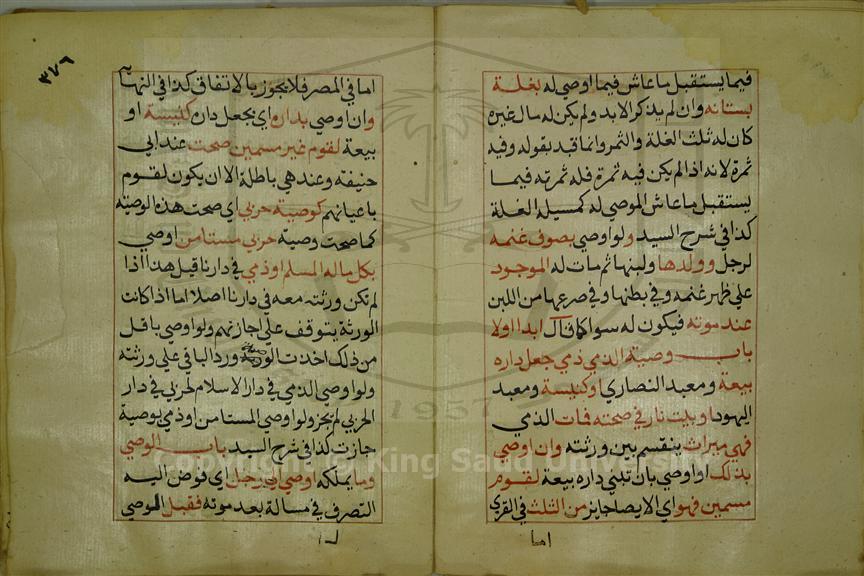 فيما يستقبل ما عاش فيما اوصي له بغلة
بستانه وان لم يذكر الابد ولم يكن له مال غيره
كان له ثلث الغلة والثمر وانما قيد بقوله وفيه
ثمرة لانه اذا لم يكن فيه ثمرة فله ثمرته فيما
يستقبل ما عاش الموصي له كمسيلة الغلة
كذا في شرح السيد ولو اوصي بصوف غنمه
لرجل وولدها ولبنها ثم مات له الموجود
علي ظهر غنمه وفي بطنها وفي ضرعها من اللبن
عند موته فيكون له سوا كان قال ابدا اولا
باب وصية الذمي ذمي جعل داره
بيعة ومعبد النصاري اوكنيسة ومعبد
اليهود اوبيت نار في صحته فمات الذمي
فهي ميراث ينقسم بين ورثته وان اوصي
بذلك او اوصي بان تبني داره بيعة لقوم
مسمين فهو اي الايصا جايز من الثلث في القري
اما
٣٧٦
اما في المصر فلا يجوز بالاتفاق كذا في النهاية
وان اوصي بداره اي يجعل داره كنيسة او
بيعة لقوم غير مسمين صحت عند ابي
حنيفه وعندهما باطلة الا ان يكون لقوم
باعيانهم كوصية حربي اي صحت هذه الوصية
كما صحت وصية حربي مستامن اوصي
بكل ماله لمسلم اوذمي في دارنا قيل هذا اذا
لم تكن ورثته معه في دارنا اصلا اما اذا كانت
الورثة يتوقف علي اجازتهم ولو اوصي باقل
من ذلك اخذت الوصية ورد الباقي علي ورثته
ولو اوصي الذمي في دار الاسلام لحربي في دار
الحربي لم يجز ولو اوصي المستامن اوذمي بوصية
جازت كذا في شرح السيد باب الوصي
وما يملكه اوصي الي رجل اي فوض اليه
التصرف في ماله بعد موته فقبل الوصي
1957
Copyright © King Saud University